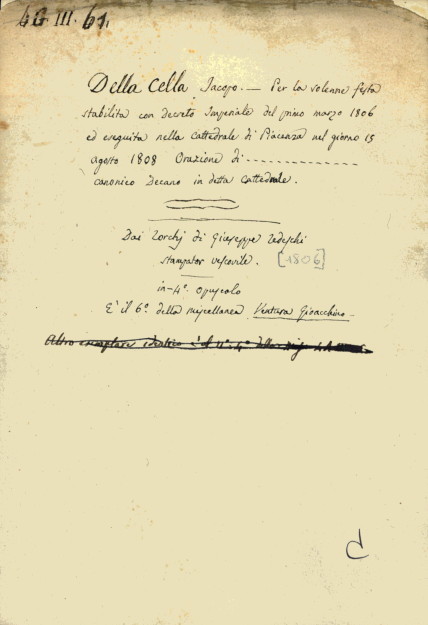 GG.III.61.
Della Cella Jacopo. — Per la solenne festa
stabilita con decreto Imperiale del primo marzo 1806
ed eseguita nella Cattedrale di Piacenza nel giorno 15
agosto 1808 Orazione di - - - - - - - - - - - - - -
canonico Decano in detta Cattedrale.
Dai Torchj di Giuseppe Tedeschi
stampator vescovile. [1806]
in-4°. opuscolo
E' il 6°. della miscellanea Ventura Gioacchino.
Altro esemplare
C